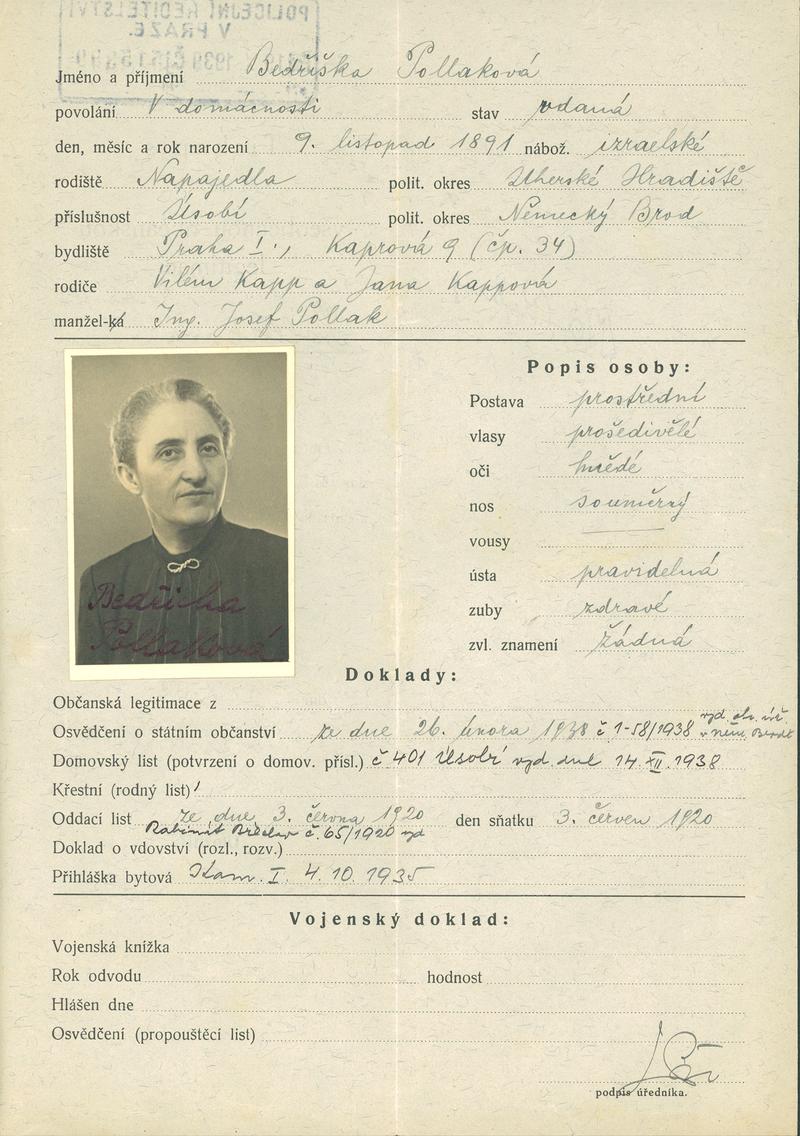 POLICEJNÍ ŘEDITELSTVÍ
V PRAZE.
Jméno a příjmení Bedřiška Pollaková
povolání V domácnosti stav vdaná
den, měsíc a rok narození 9. listopad 1891 nábož. izraelské
rodiště Napajedla polit. okres Uherské Hradiště
příslušnost Úsobí polit. okres Německý Brod
bydliště Praha I., Kaprová 9 (čp. 34)
rodiče Vilém Kapp a Jana Kappová
manžel-ká Ing. Josef Pollak
Popis osoby:
Postava prostřední
vlasy prošedivělé
oči hnědé
nos souměrný
vousy
ústa pravidelná
zuby zdravé
zvl. znamení žádná
Bedřiška
Pollaková
Doklady:
Občanská legitimace z
Osvědčení o státním občanství ze dne 26. února 1938 č 1-58/1938 vyd. okr. úř. v Něm. Brodě
Domovský list (potvrzení o domov. přísl.) č 401 Úsobí vyd. dne 14. XII. 1938
Křestní (rodný list)
Oddací list ze dne 3. června 1920 den sňatku 3. červen 1920
Rabinát Břeclav č. 65/1920 vyd
Doklad o vdovství (rozl., rozv.)
Přihláška bytová Kom. I. 4. 10. 1935
Vojenský doklad:
Vojenská knížka
Rok odvodu hodnost
Hlášen dne
Osvědčení (propouštěcí list)
podpis úředníka.